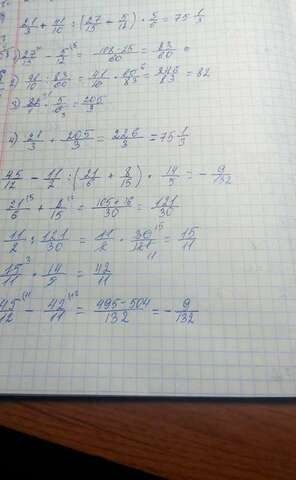 21/3 + 41/10 : (27/15 - 5/12) · 5/6 = 75 1/3
1) 27/15 - 5/12 = 108-25/60 = 83/60
2) 41/10 : 83/60 = 41/10 · 60/83 = 246/83 = 82
3) 82/1 · 5/6 = 205/3
4) 21/3 + 205/3 = 226/3 = 75 1/3
45/12 - 11/2 : (21/6 + 8/15) · 14/5 = - 9/132
21/6 + 8/15 = 105+16/30 = 121/30
11/2 : 121/30 = 11/2 · 30/121 = 15/11
15/11 · 14/5 = 42/11
45/12 - 42/11 = 495-504/132 = - 9/132